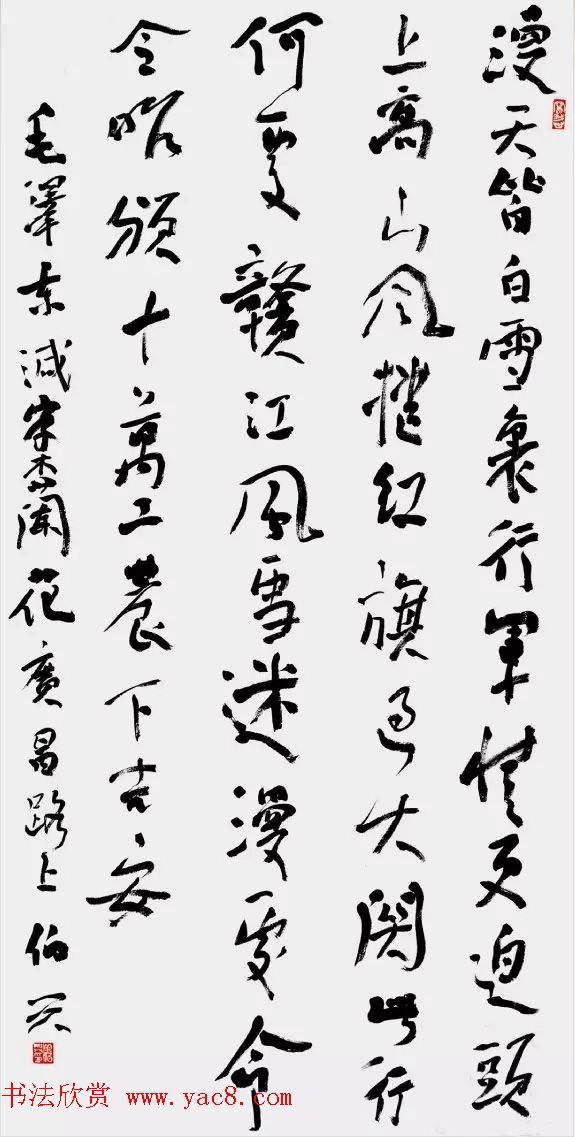 漫天皆白雪裏行軍情更迫頭
上高山風捲紅旗過大關此行
何處贛江風雪迷漫處命
令昨頒十萬工農下吉安
毛澤東減字木蘭花廣昌路上伯
书法欣赏 www.yac8.com